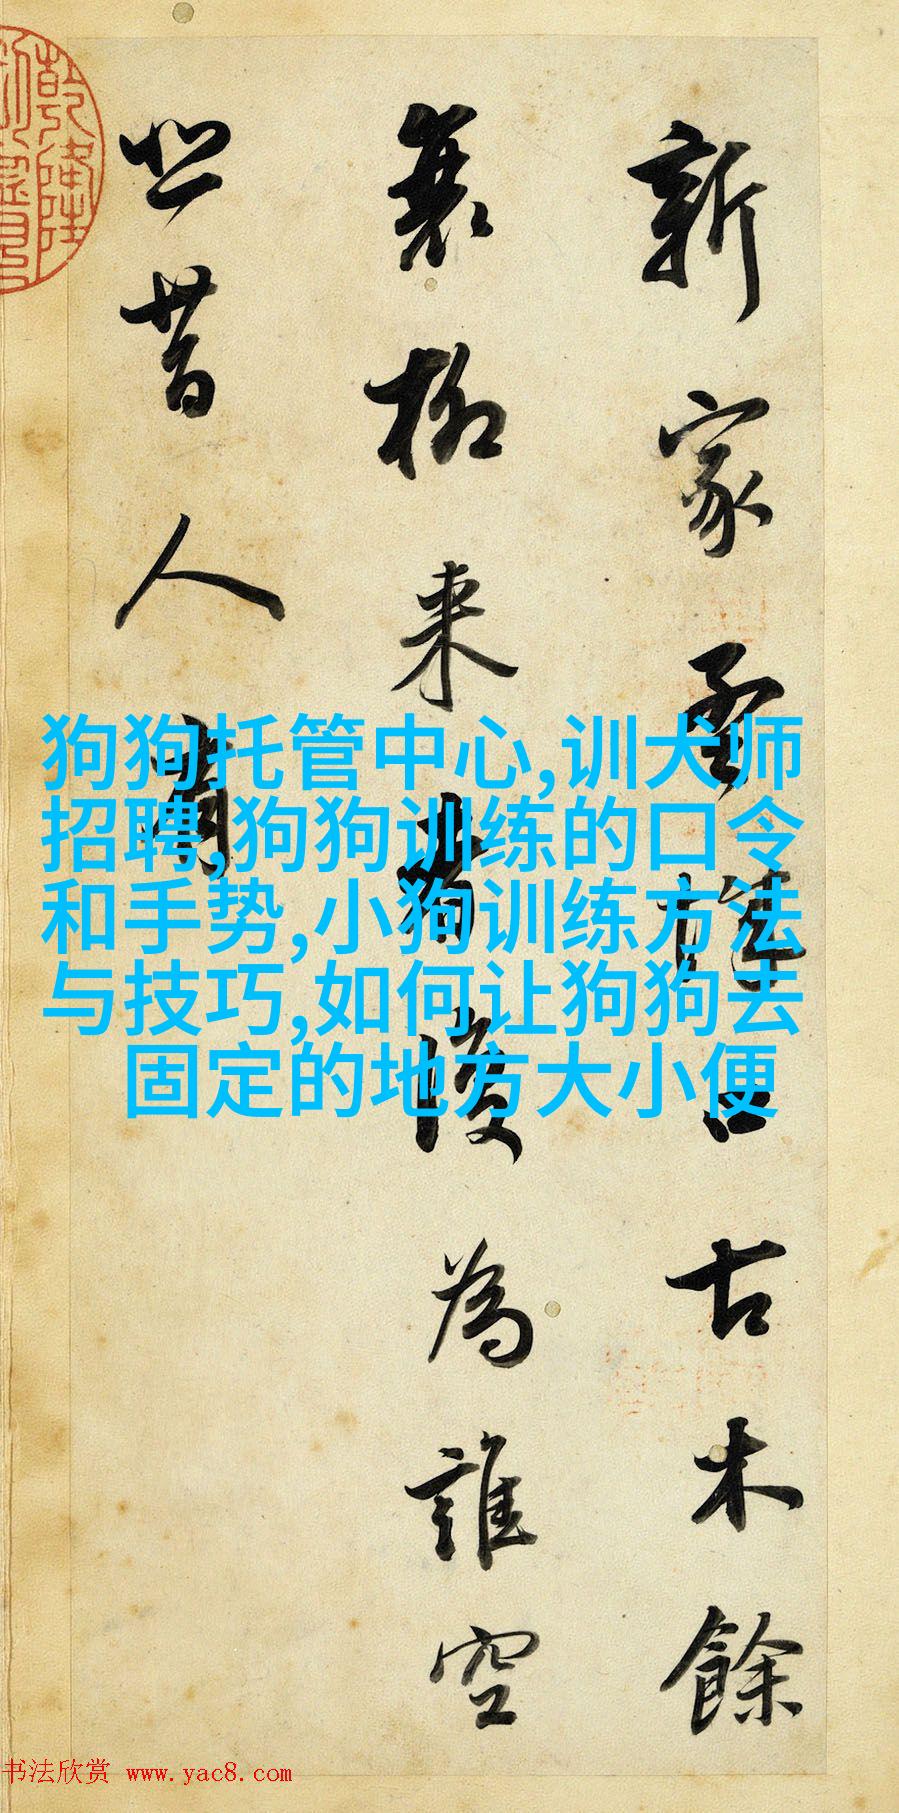 新家孟城口古木餘
衰柳来者復為誰空
悲昔人有
乾隆
狗狗托管中心,训犬师
招聘,狗狗训练的口令
和手势,小狗训练方法
与技巧,如何让狗狗去
固定的地方大小便
书法欣赏 www.yac8.com